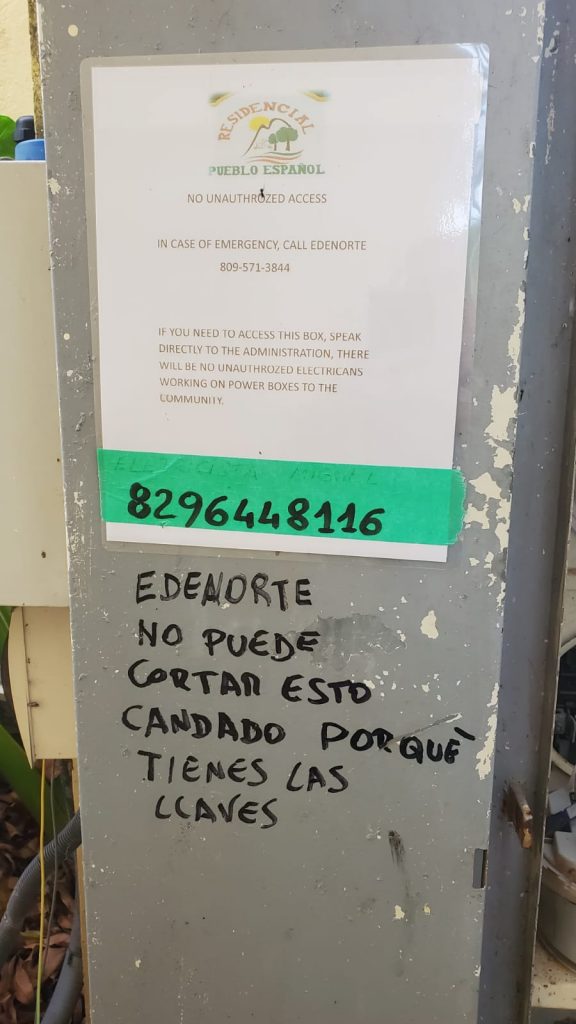 RESIDENCIAL
PUEBLO ESPAÑOL
NO UNAUTHROZED ACCESS
IN CASE OF EMERGENCY, CALL EDENORTE
809-571-3844
IF YOU NEED TO ACCESS THIS BOX, SPEAK
DIRECTLY TO THE ADMINISTRATION, THERE
WILL BE NO UNAUTHROZED ELECTRICANS
WORKING ON POWER BOXES TO THE
COMMUNITY.
8296448116
EDENORTE
NO PUEDE
CORTAR ESTO
CANDADO PORQUÈ
TIENES LAS
LLAVES